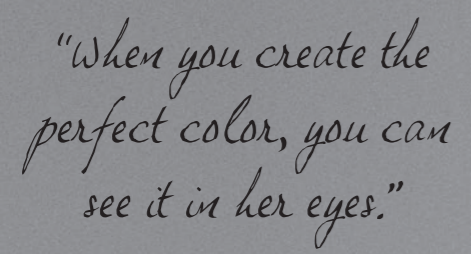 “When you create the
perfect color, you can
see it in her eyes.”